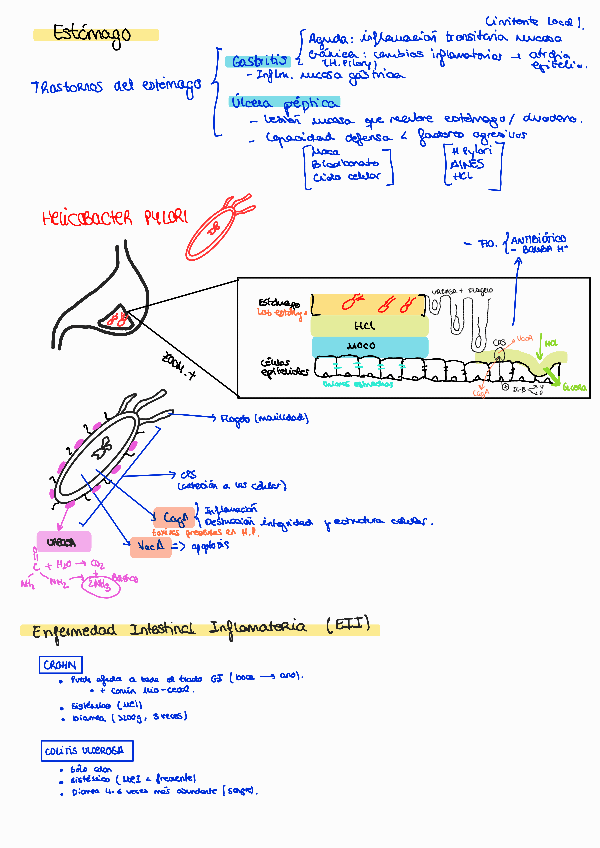 Estómago
(irritante local).
Trastornos del estómago
Gastritis
Aguda: inflamación transitoria mucosa
Crónica: cambios inflamatorios → atrofia
(H. Pilory) epitelio.
- Inflm. mucosa gástrica
Úlcera péptica
- Lesión mucosa que recubre estómago / duodeno.
- Capacidad defensa < factores agresivos
Moco
Bicarbonato
Ciclo celular
H Pylori
AINES
HCL
HELICOBACTER PYLORI
- TTO. ANTIBIÓTICO
- BOMBA H+
UREASA + FLAGELO
Estómago
HCL
MOCO
Células
epiteliales
VacA
HCL
CagA
ÚLCERA
ZOOM +
Flagelo (movilidad)
(adhesión a las células)
CagA
Inflamación
Destrucción integridad y estructura celular.
toxinas presentes en H.P.
VacA => apoptosis
UREASA
C + H2O → CO2
+
NH2 NH2 2NH3 BÁSICO
Enfermedad Intestinal Inflamatoria (EII)
CROHN
• Puede afectar a todo el tracto GI (boca → ano).
• + común íleo-cecal.
• Sistémico
• Diarrea
COLITIS ULCEROSA
• Sólo colon
• Sistémico
• Diarrea 4-6 veces más abundante (sangre).